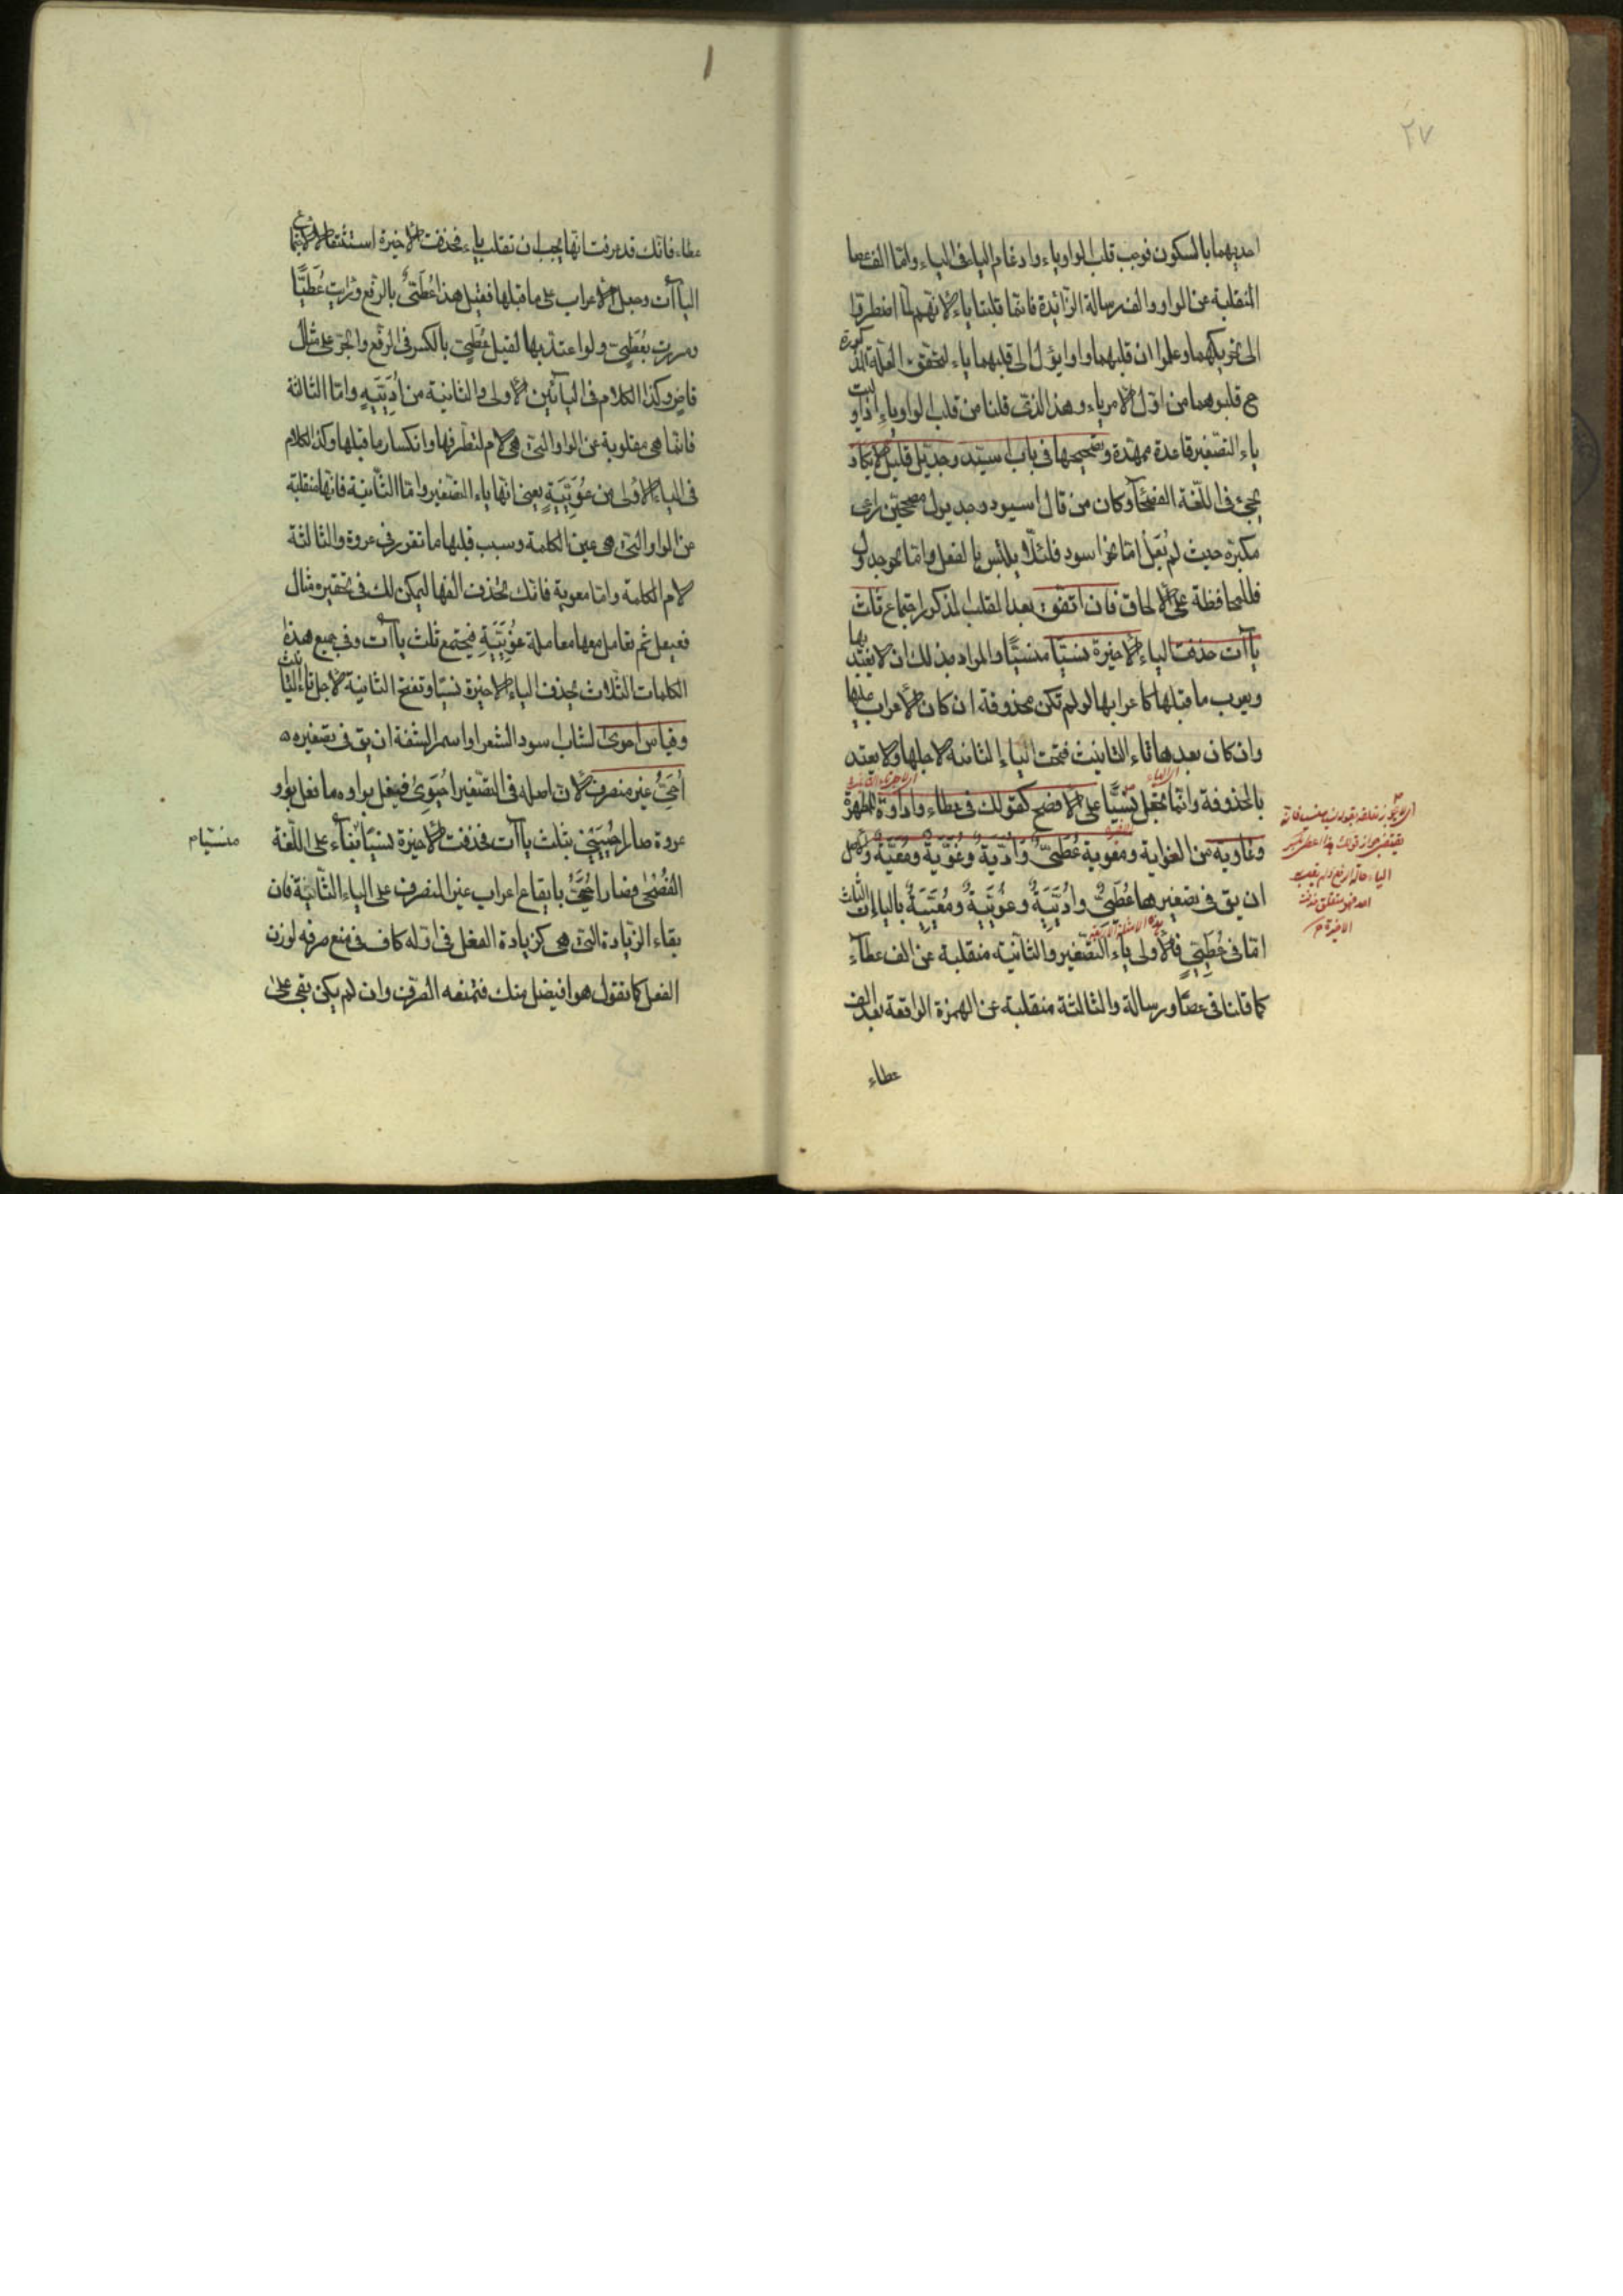 ٢٧
احديهما بالسكون فوجب قلب الواو ياء وادغام الياء فى الياء وامّا الف عصا
المنقلبة عن الواو والف رسالة الزّائدة فانّما قلبتا ياء لانّهم لمّا اضطرّوا
الى تحريكهما وعلموا ان قلبهما واوا يؤل الى قلبهما ياء لتحقق العلّة المذكورة
ح قلبوهما من اوّل الامر ياء وهذا الذى قلنا من قلب الواو ياء اذا وليت
ياء التصغير قاعدة ممهّدة وتصحيحها فى باب اسيّد وجديّل قليل لا يكاد
يجئ فى اللّغة الفصحى وكان من قال اسيود وجديول مصححين راعى
مكبّره حيث لم يعلّ امّا نحو اسود فلئلّا يلتبس بالفعل وامّا نحو جدول
فللمحافظة على الالحاق فان اتفق بعد القلب المذكور اجتماع ثلث
ياآت حذفت الياء الاخيرة نسيًا منسيًّا والمراد بذلك ان لا يعتد بها
ويعرب ما قبلها كاعرابها لو لم تكن محذوفة ان كان الاعراب عليها
وان كان بعدها تاء التانيث فتحت الياء الثانية لاجلها ولا يعتد
بالمحذوفة وانّما تجعل نسيًّا على الافصح كقولك فى عطاء واداوة للمطهرة
وغاوية من الغواية ومعوية عُطَىٌّ وادَيّة وغُوَيّة ومُعَيّة والاصل
ان يق فى تصغيرها عُطَيّى واُدَيّيَة وغُوَيّيَة ومُعَيّيَة بالياآت الثلث
امّا فى عُطَيّى فالاولى ياء التصغير والثانية منقلبة عن الف عطاء
كما قلنا فى عصا ورسالة والثالثة منقلبة عن الهمزة الواقعة بعد الف
عطاء
الياء حالة الرفع
الاخيرة
عطاء فانّك قد عرفت انّها يجب ان تقلب ياء فحذفت الاخيرة استثقالا لاجتماع
الياآت وجعل الاعراب على ما قبلها فقيل هذا عُطَىٌّ بالرّفع ورايت عُطَيًّا
ومررت بعُطَىٍّ ولو اعتدّ بها لقيل عُطَىٍّ بالكسر فى الرّفع والجرّ على مثال
قاضٍ وكذا الكلام فى اليائين الاولى والثانية من اُدَيّيَة وامّا الثالثة
فانّما هى مقلوبة عن الواو التى هى لام لتطرّفها وانكسار ما قبلها وكذا الكلام
فى الياء الاولى من غُوَيّيَة يعنى انّها ياء التصغير وامّا الثّانية فانّها منقلبة
عن الواو التى هى عين الكلمة وسبب قلبها ما تقرر فى عروة والثالثة
لام الكلمة وامّا معوية فانّك تحذف الفها ليمكن لك فى تحقيره مثال
فعيعل ثم تعامل معها معاملة غُوَيّيَة فيجتمع ثلث ياآت وفى جميع هذه
الكلمات الثّلاث تحذف الياء الاخيرة نسيًا وتفتح الثانية لاجل تاء التانيث
وقياس احوى لشاب اسود الشعر او اسمر الشفة ان يق فى تصغيره
اُحَىُّ غير منصرف لان اصله فى التّصغير احَيْوِى ففعل بواوه ما فعل بواو
عروة صار اُحَيّى بثلث ياآت فحذفت الاخيرة نسيًا بناءً على اللّغة
منسيّا م
الفُصْحى فصار اُحَىُّ بايقاع اعراب غير المنصرف على الياء الثّانية فان
بقاء الزّيادة التى هى كزيادة الفعل فى اوّله كاف فى منع صرفه لوزن
الفعل كما تقول هو افيضل منك فتمنعه الصّرف وان لم يكن بقى على